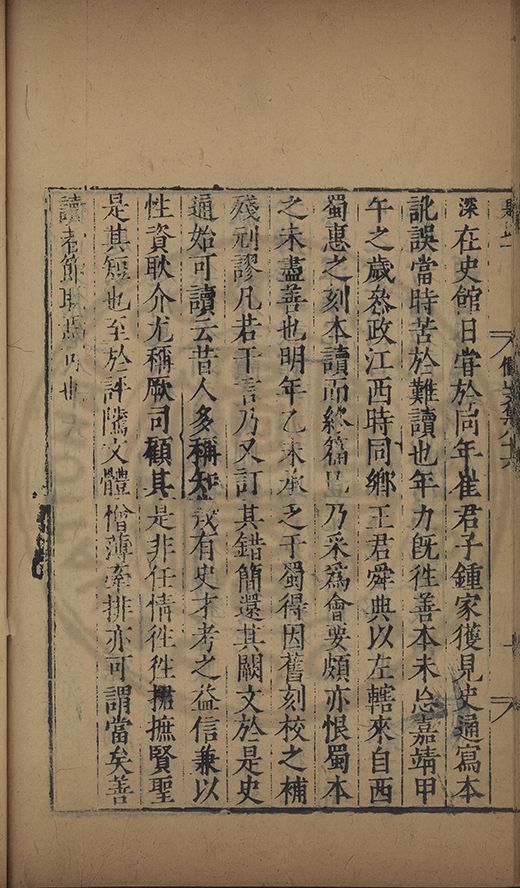 深在史館日嘗於同年崔君子鍾家獲見史通寫本
訛誤當時苦於難讀也年力既徃善本未忘嘉靖甲
午之歲叅政江西時同鄉王君舜典以左轄來自西
蜀惠之刻本讀而終篇已乃采爲會要頗亦恨蜀本
之未盡善也明年乙未承乏于蜀得因舊刻校之補
殘刓謬凡若干言乃又訂其錯簡還其闕文於是史
通始可讀云昔人多稱知幾有史才考之益信兼以
性資耿介尤稱厥司顧其是非任情徃徃捃摭賢聖
是其短也至於評隲文體憎薄牽排亦可謂當矣善
讀者節取焉可也